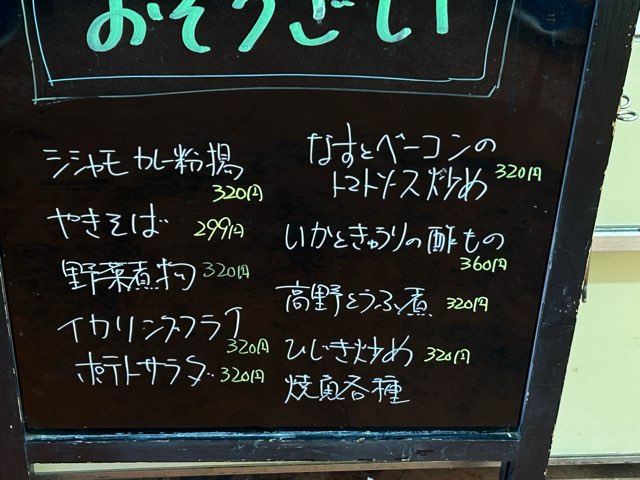 おそうざい
シシャモカレー粉揚
320円
やきそば 299円
野菜煮物 320円
イカリングフライ
320円
ポテトサラダ 320円
なすとベーコンの
トマトソース炒め 320円
いかときゅうりの酢もの
360円
高野とうふ煮 320円
ひじき炒め 320円
焼魚各種